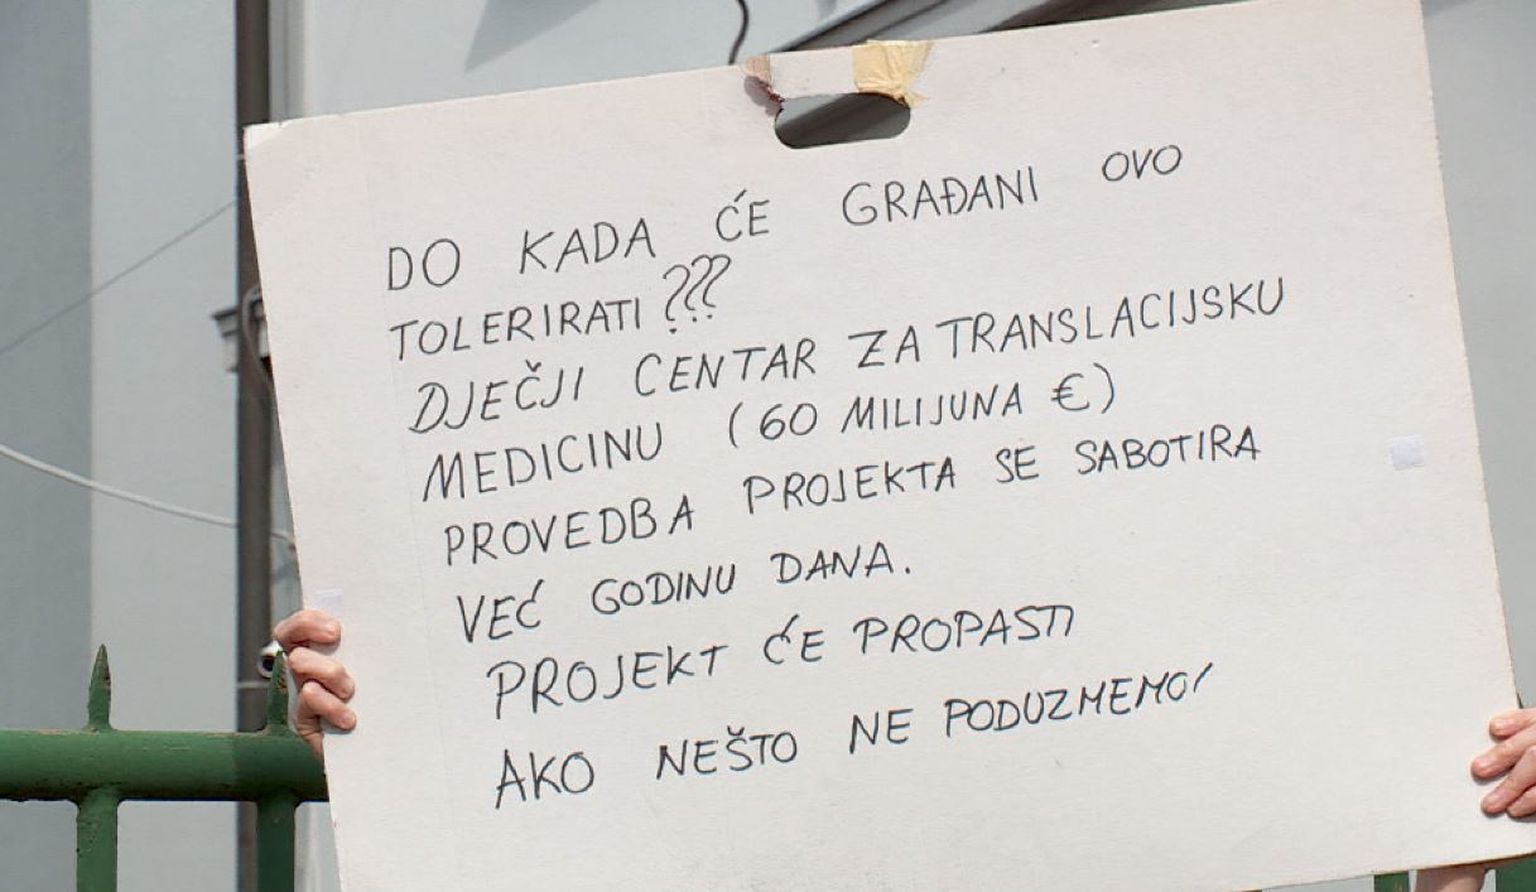 DO KADA ĆE GRAĐANI OVO
TOLERIRATI???
DJEČJI CENTAR ZA TRANSLACIJSKU
MEDICINU (60 MILIJUNA €)
PROVEDBA PROJEKTA SE SABOTIRA
VEĆ GODINU DANA.
PROJEKT ĆE PROPASTI
AKO NEŠTO NE PODUZMEMO!